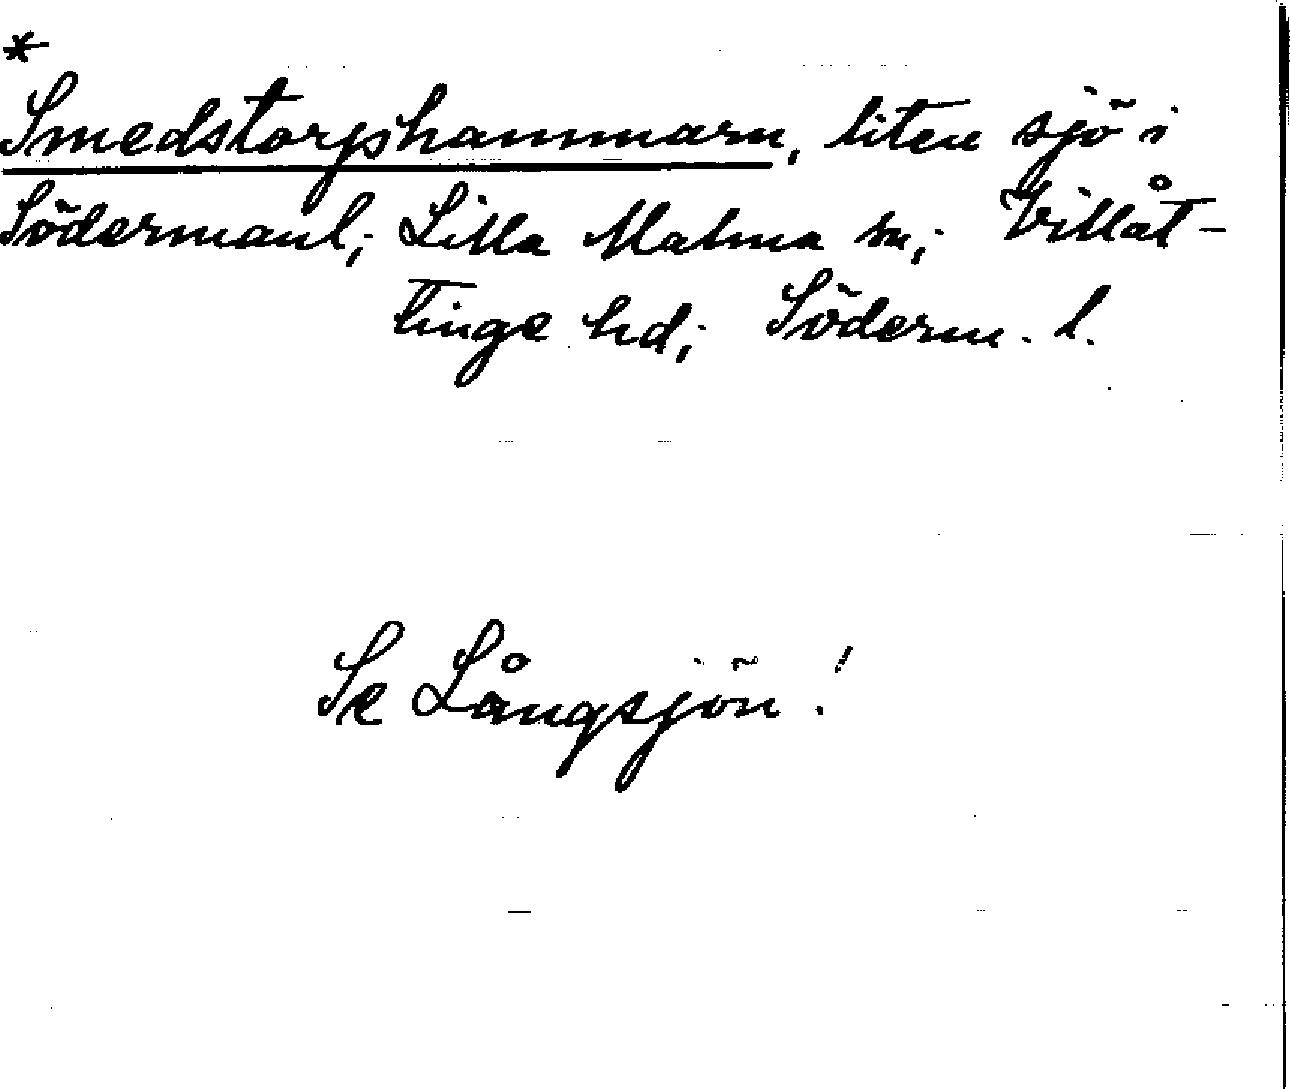 *
Smedstorpshammarn, liten sjö i
Södermanl; Lilla Malma sn; Villåt-
tinge hd; Söderm. l.
Se Långsjön!